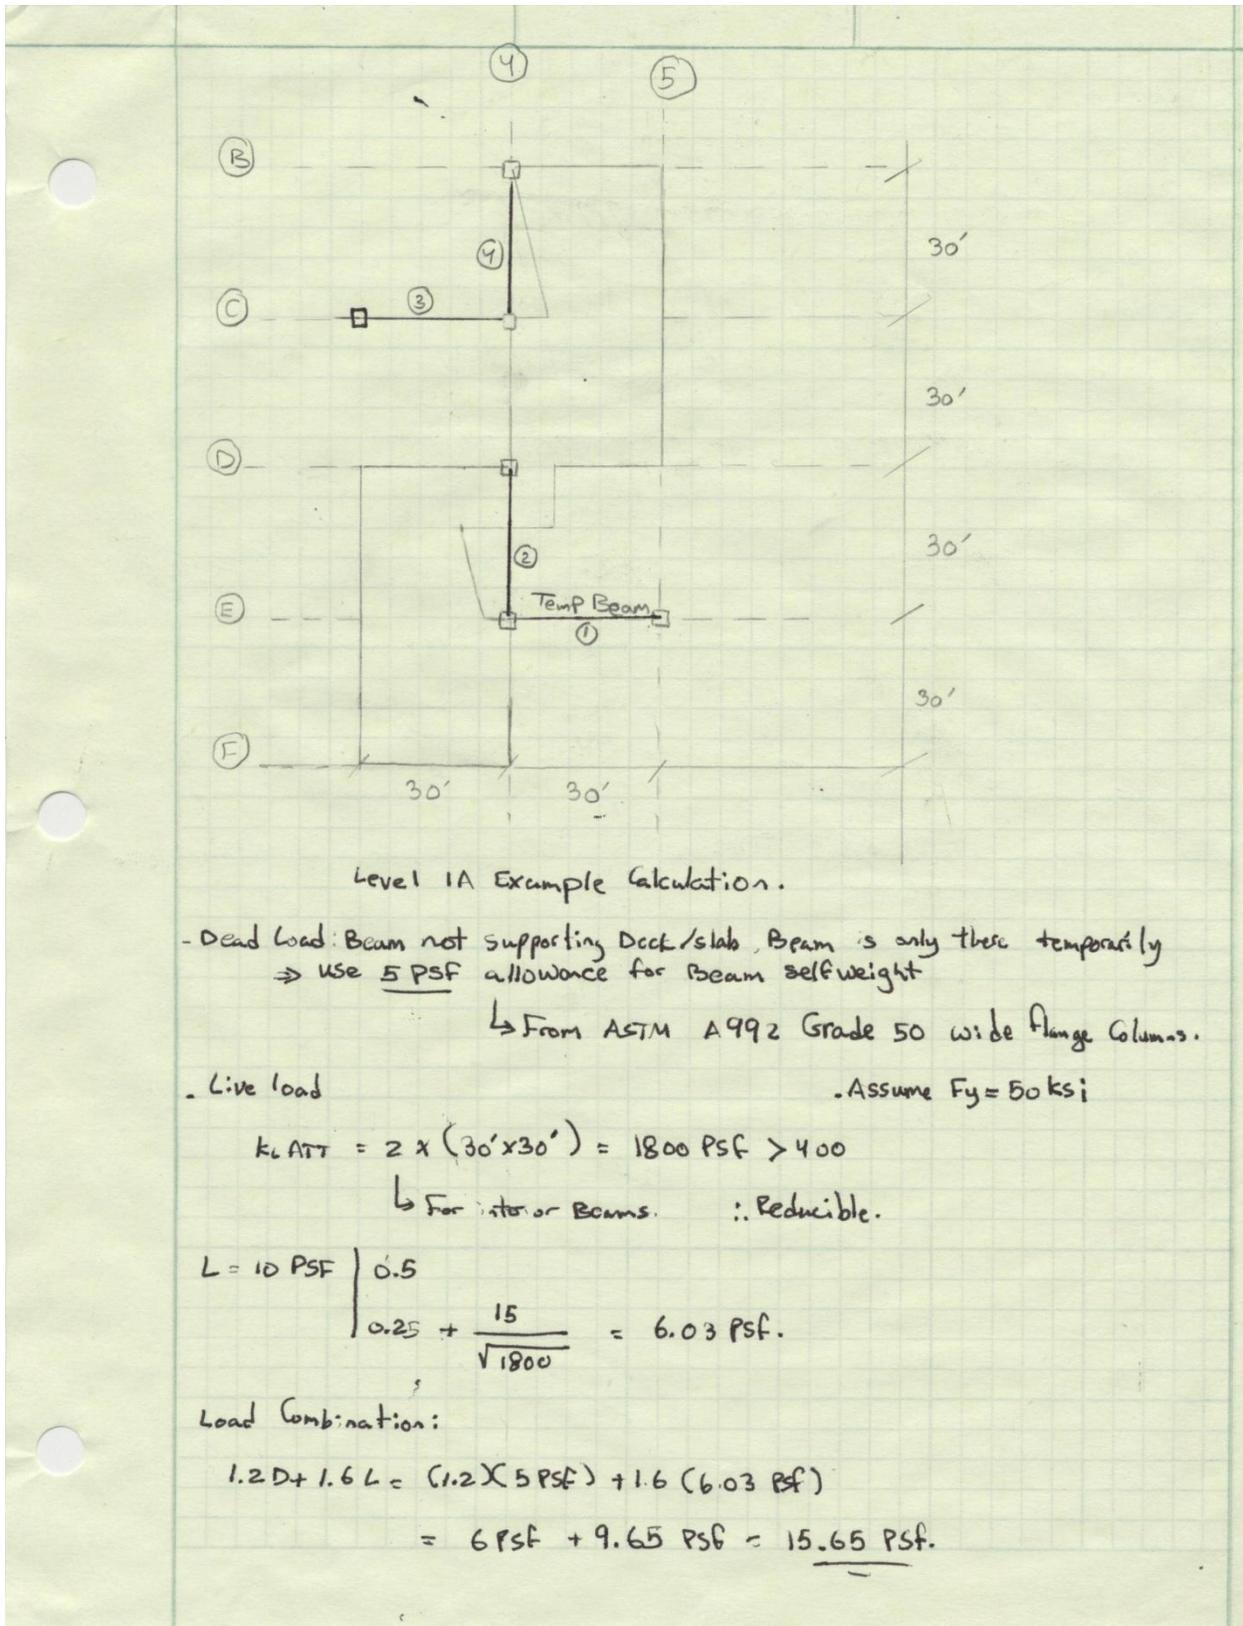 4
5
B
30'
4
C
3
30'
D
30'
2
E
Temp Beam
1
30'
F
30'
30'
Level 1A Example Calculation.
- Dead Load: Beam not supporting Deck/slab, Beam is only there temporarily
⇒ use 5 PSF allowance for Beam selfweight
↳ From ASTM A992 Grade 50 wide flange Columns.
- Live load
. Assume Fy = 50 ksi
KL ATT = 2 x (30'x30') = 1800 PSf > 400
↳ For interior Beams. ∴ Reducible.
L = 10 PSF | 0.5
0.25 + 15/√1800 = 6.03 Psf.
Load Combination:
1.2D+ 1.6L = (1.2)(5 PSf) + 1.6 (6.03 Psf)
= 6 PSf + 9.65 PSf = 15.65 PSf.